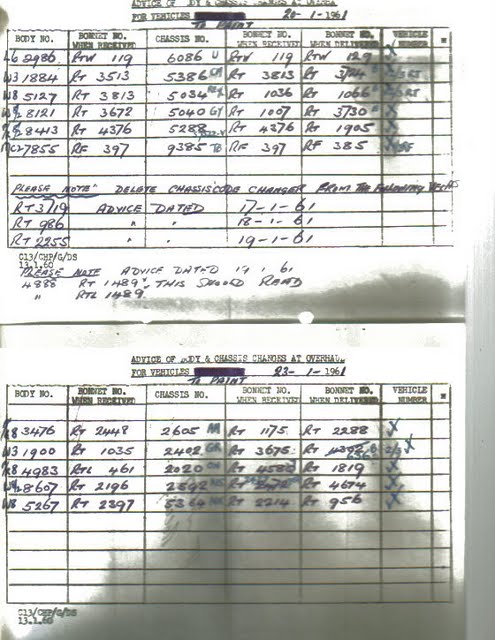 ADVICE OF BODY & CHASSIS CHANGES AT
FOR VEHICLES 20-1-1961
TO PAINT
BODY NO. BONNET NO. WHEN RECEIVED CHASSIS NO. BONNET NO. WHEN RECEIVED BONNET NO. WHEN DELIVERED VEHICLE NUMBER
2986 RTW 119 6086 U RTW 119 RTW 129 X
W3 1884 RT 3513 5386 RT 3813
W8 5127 RT 3813 5034 RT 1036 RT 1066 RT
8121 RT 3672 5040 GY RT 1007 RT 3730 X
8413 RT 4376 5288 RT 4376 RT 1905 X
7855 RF 397 9385 TB RF 397 RF 385
PLEASE NOTE" DELETE CHASSIS CODE CHANGES FROM THE FOLLOWING
RT 3719 ADVICE DATED 17-1-61
RT 986 " " 18-1-61
RT 2255 " " 19-1-61
C13/CHP/G/DS
13.1.60
PLEASE NOTE ADVICE DATED 19 1 61
4888 RT 1489, THIS SHOULD READ
" RTL 1489.
ADVICE OF BODY & CHASSIS CHANGES AT OVERHAUL
FOR VEHICLES 23-1-1961
TO PAINT
BODY NO. BONNET NO. WHEN RECEIVED CHASSIS NO. BONNET NO. WHEN RECEIVED BONNET NO. WHEN DELIVERED VEHICLE NUMBER
3476 RT 2448 2605 RT 1175 RT 2288 X
W3 1900 RT 1035 2402 GR RT 3675 RT X
R8 4983 RTL 461 2020 RT 4580 RT 1819 X
8607 RT 2196 2592 RT RT 4674 X
W8 5267 RT 2397 5364 RT 2214 RT 956 X
C13/CHP/G/DS
13.1.60